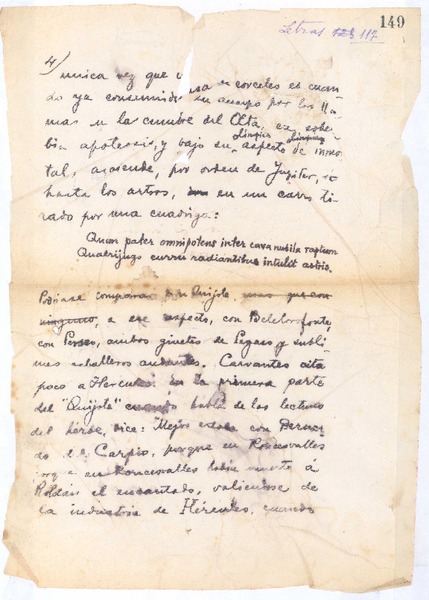 149
Letras 123 117
4)
unica vez que usa corceles es cuan-
do ya consumido su cuerpo por las lla-
mas en la cumbre del Œta, en sober-
bia apoteosis, y bajo su aspecto de inmor-
tal, asciende, por orden de Jupiter,
hasta los astros, en un carro ti-
rado por una cuadriga:
Quam pater omnipotens inter cava nubila raptum
Quadrijugo curru radiantibus intulit astris.
Podriase comparar Don Quijote, mas que con
ninguno, a ese aspecto, con Belelorofonte,
con Perseo, ambos ginetes de Pegaso y subli-
mes caballeros andantes. Cervantes cita
poco a Hercules. En la primera parte
del "Quijote" cuando habla de las lecturas
del héroe, dice: "Mejor estaba con Bernar-
do del Carpio, porque en Roncesvalles
en Roncesvalles habia muerto a
Roldán el encantado, valiendose de
la industria de Hércules, cuando